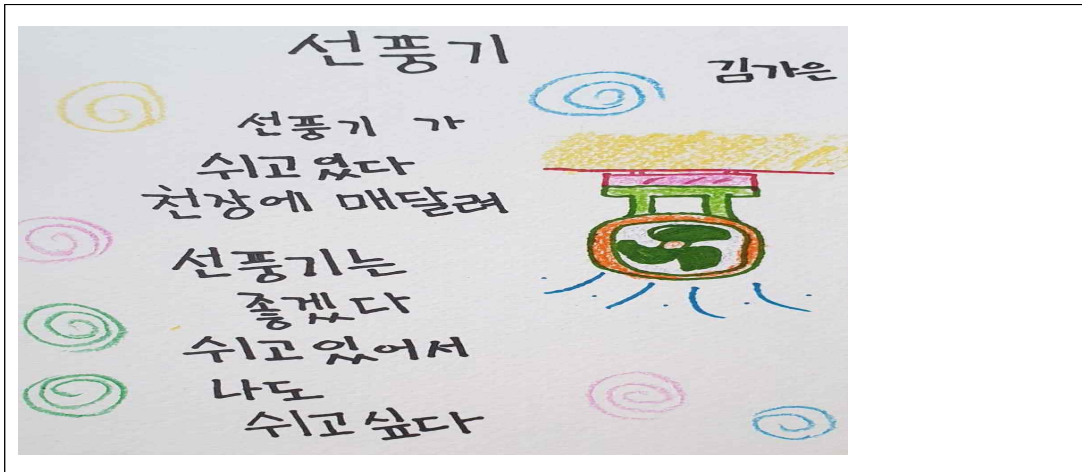 선풍기
김가은
선풍기 가
쉬고 있다
천장에 매달려
선풍기는
좋겠다
쉬고 있어서
나도
쉬고 싶다